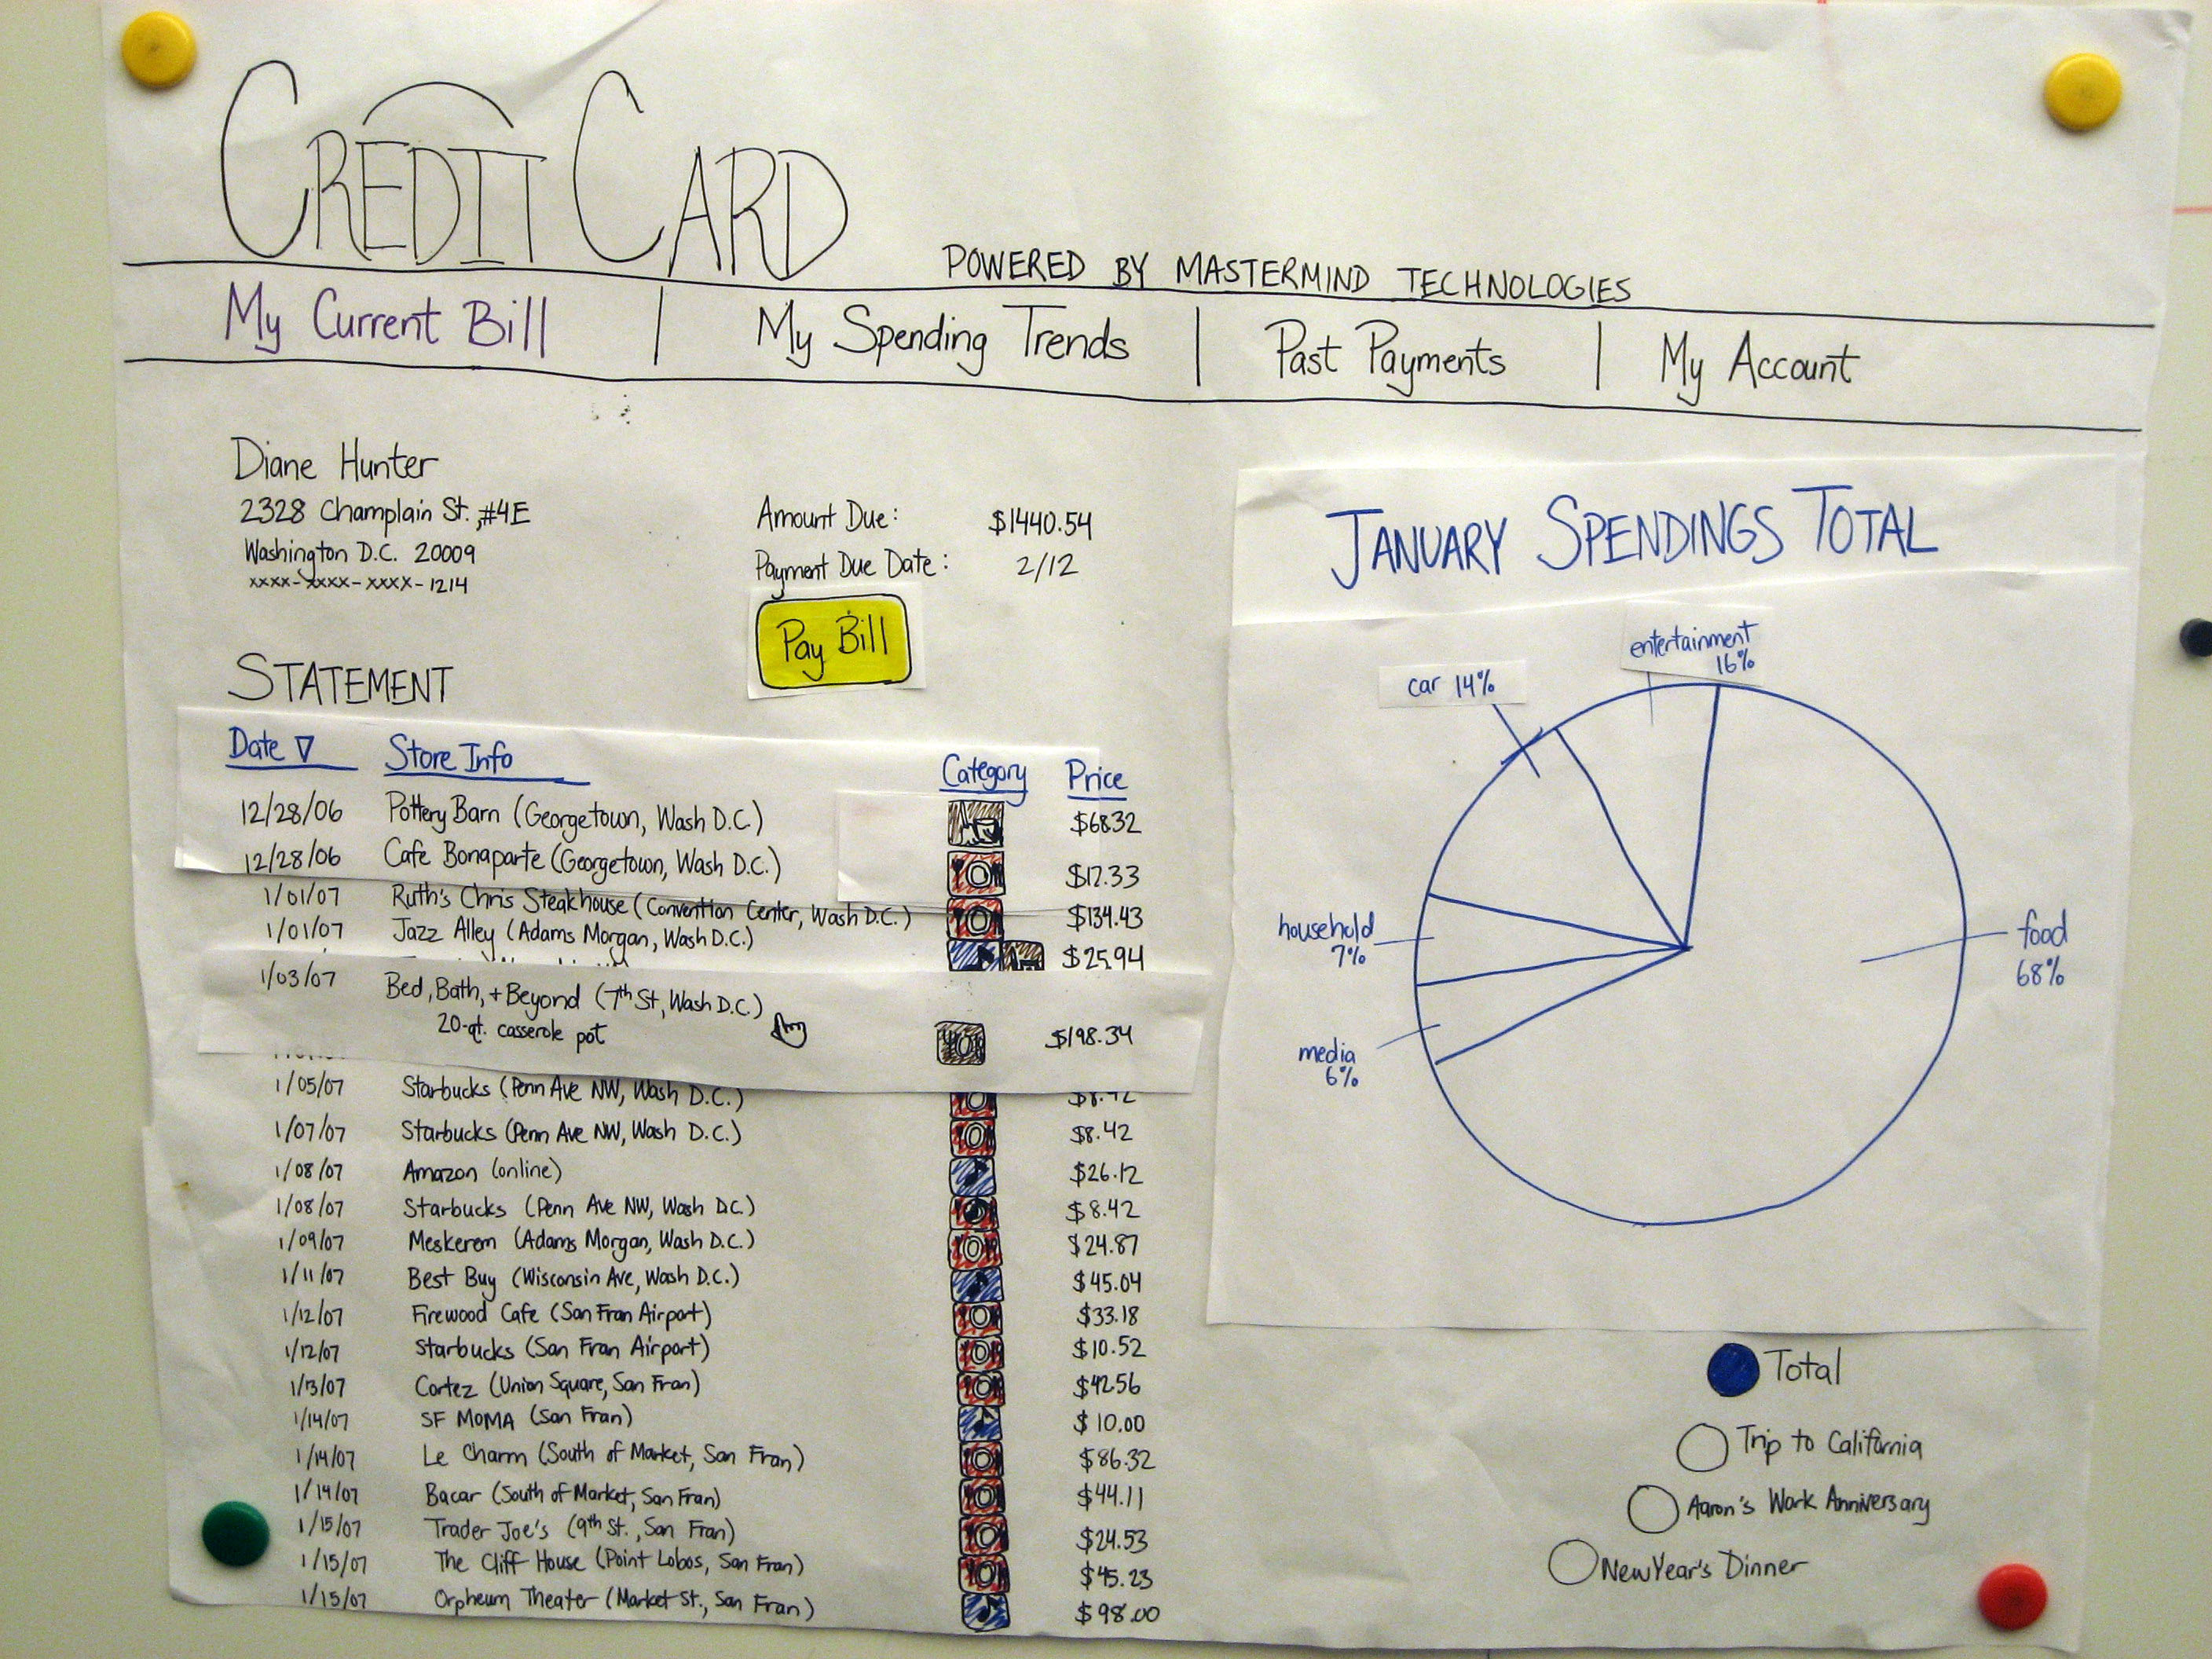 CREDIT CARD
POWERED BY MASTERMIND TECHNOLOGIES
My Current Bill | My Spending Trends | Past Payments | My Account
Diane Hunter
2328 Champlain St. #4E
Washington D.C. 20009
xxxx-xxxx-xxxx-1214
Amount Due: $1440.54
Payment Due Date: 2/12
Pay Bill
STATEMENT
Date ▽ Store Info Category Price
12/28/06 Pottery Barn (Georgetown, Wash D.C.) $68.32
12/28/06 Cafe Bonaparte (Georgetown, Wash D.C.) $17.33
1/01/07 Ruth's Chris Steakhouse (Convention Center, Wash D.C.) $134.43
1/01/07 Jazz Alley (Adams Morgan, Wash D.C.) $25.94
1/03/07 Bed, Bath, + Beyond (7th St, Wash D.C.)
20-qt. casserole pot $198.34
1/05/07 Starbucks (Penn Ave NW, Wash D.C.) $8.42
1/07/07 Starbucks (Penn Ave NW, Wash D.C.) $8.42
1/08/07 Amazon (online) $26.12
1/08/07 Starbucks (Penn Ave NW, Wash D.C.) $8.42
1/09/07 Meskerem (Adams Morgan, Wash D.C.) $24.87
1/11/07 Best Buy (Wisconsin Ave, Wash D.C.) $45.04
1/12/07 Firewood Cafe (San Fran Airport) $33.18
1/12/07 Starbucks (San Fran Airport) $10.52
1/13/07 Cortez (Union Square, San Fran) $42.56
1/14/07 SF MOMA (San Fran) $10.00
1/14/07 Le Charm (South of Market, San Fran) $86.32
1/14/07 Bacar (South of Market, San Fran) $44.11
1/15/07 Trader Joe's (9th St., San Fran) $24.53
1/15/07 The Cliff House (Point Lobos, San Fran) $45.23
1/15/07 Orpheum Theater (Market St., San Fran) $98.00
JANUARY SPENDINGS TOTAL
entertainment
16%
car 14%
household
7%
media
6%
food
68%
Total
Trip to California
Aaron's Work Anniversary
New Year's Dinner